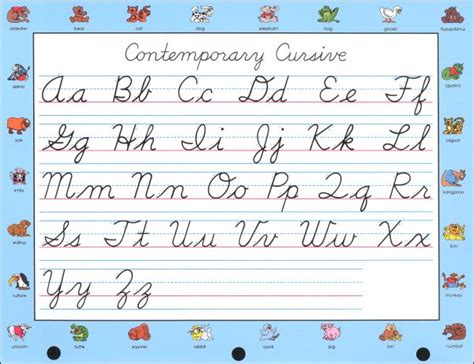 elephant frog goose hippopotamus
Contemporary Cursive
Aa Bb Cc Dd Ee Ff
zebra iguana
Gg Hh Ii Jj Kk Ll
yak jaguar
Mm Nn Oo Pp Qq Rr
x-ray kangaroo
Ss Tt Uu Vv Ww Xx
walrus lion
Yy Zz
vulture monkey
unicorn turtle squirrel rabbit quail